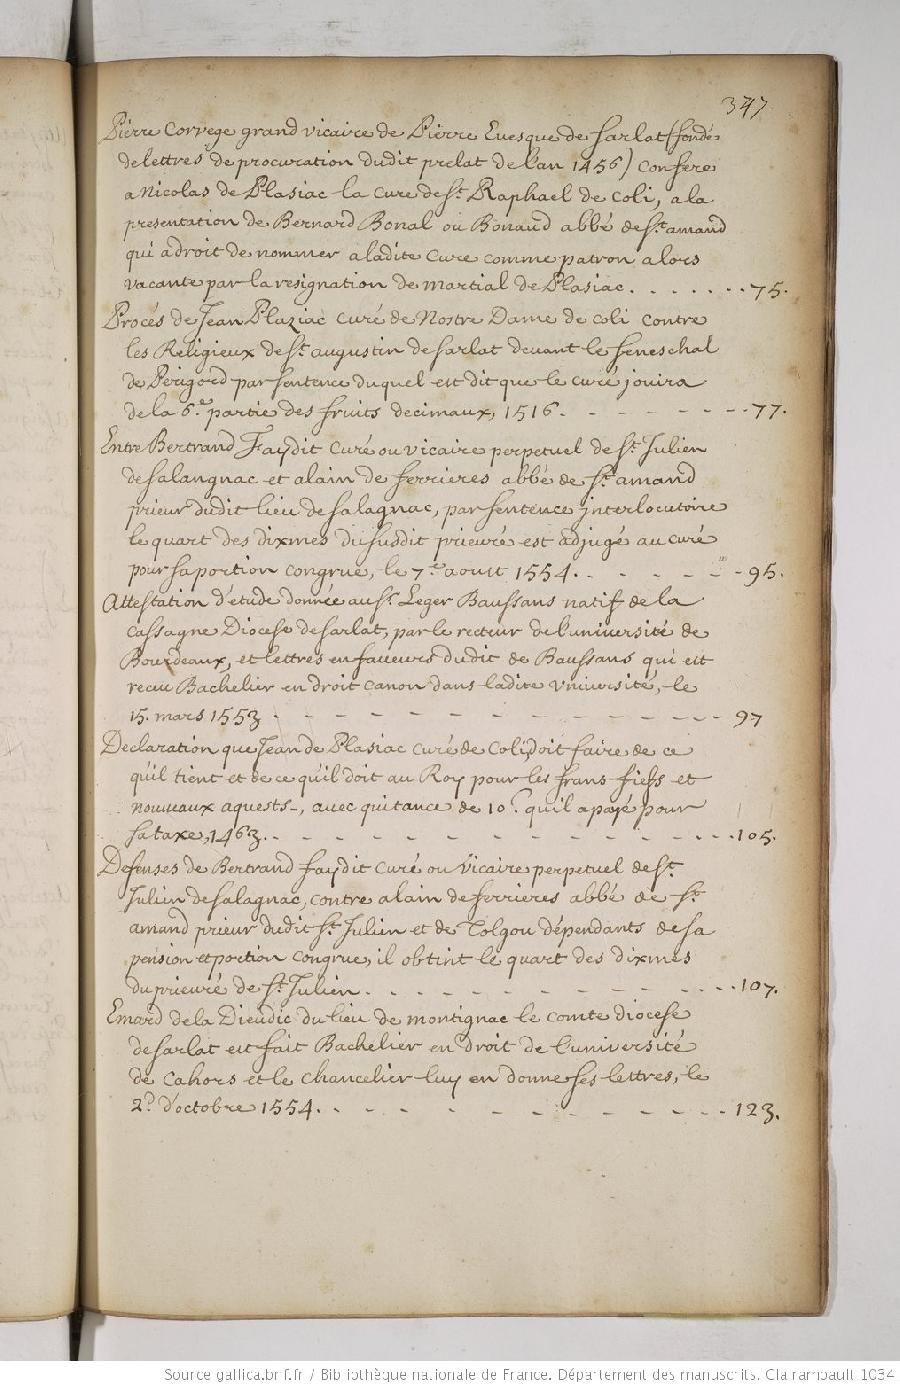 347.
Pierre Corvege grand vicaire de Pierre Evesque de Sarlat (fondé
de lettres de procuration dudit prelat de l'an 1456) confere
a Nicolas de Plasiac la cure de St. Raphael de Coli, a la
presentation de Bernard Bonal ou Bonaud abbé de St. amand
qui a droit de nommer a ladite cure comme patron alors
vacante par la resignation de martial de Plasiac. . . . . . . . 75.
Procés de Jean Plaziac curé de Nostre Dame de Coli contre
les Religieux de St. augustin de Sarlat devant le seneschal
de Perigord par sentence duquel est dit que le curé jouira
de la 6.e partie des fruits decimaux, 1516. - - - - - - - 77.
Entre Bertrand Faydit curé ou vicaire perpetuel de St. Julien
de Salangnac et alain de ferrieres abbé de St. amand
prieur dudit lieu de Salagnac, par sentence interlocutoire
le quart des dixmes du susdit prieuré est adjugé au curé
pour sa portion congrue, le 7.e aoust 1554. - - - - - - 95.
Attestation d'etude donnée au Sr. Leger Baussans natif de la
Cassagne Diocese de Sarlat, par le recteur de l'université de
Bourdeaux, et lettres en faveurs dudit de Baussans qui est
receu Bachelier en droit canon dans ladite Vniversité, le
15. mars 1553 - - - - - - - - - - - - 97
Declaration que Jean de Plasiac curé de Coli, doit faire de ce
qu'il tient et de ce qu'il doit au Roy pour les frans fiefs et
nouveaux aquests, avec quitance de 10 s. qu'il a payé pour
sa taxe, 1463. - - - - - - - - - - - - 105.
Defenses de Bertrand faydit curé ou vicaire perpetuel de St.
Julien de Salagnac, contre alain de ferrieres abbé de St.
amand prieur dudit St. Julien et de Tolgou dépendants de sa
pension et portion congrue, il obtint le quart des dixmes
du prieuré de St. Julien. - - - - - - - - - - 107.
Emard de la Dieudie du lieu de montignac le comte diocese
de Sarlat est fait Bachelier en droit de l'université
de Cahors et le Chancelier luy en donne ses lettres, le
2.d d'octobre 1554. - - - - - - - - - - 123.
Source gallica.bnf.fr / Bibliothèque nationale de France. Département des manuscrits. Clairambault 1034